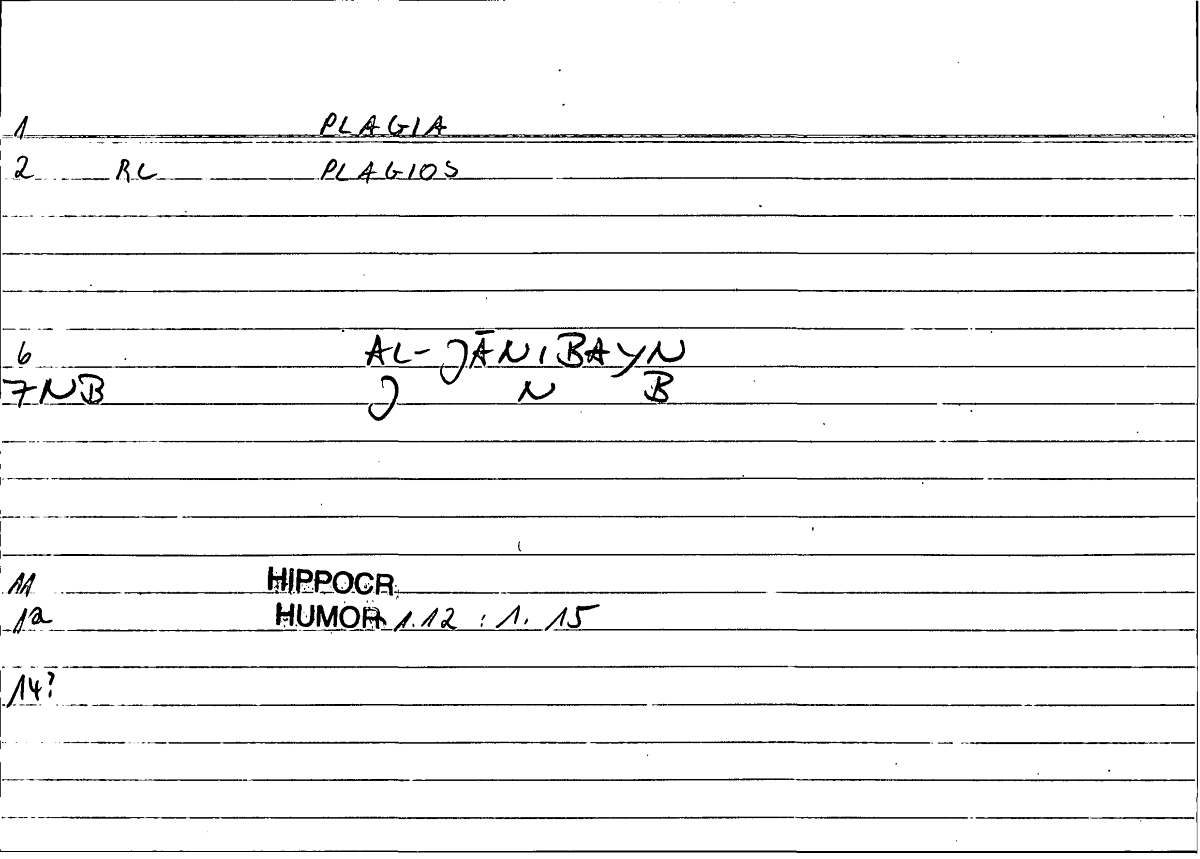 1 PLAGIA
2 RL PLAGIOS
6 AL-JĀNIBAYN
7NB J N B
11 HIPPOCR.
12 HUMOR 1.12 : 1. 15
14?